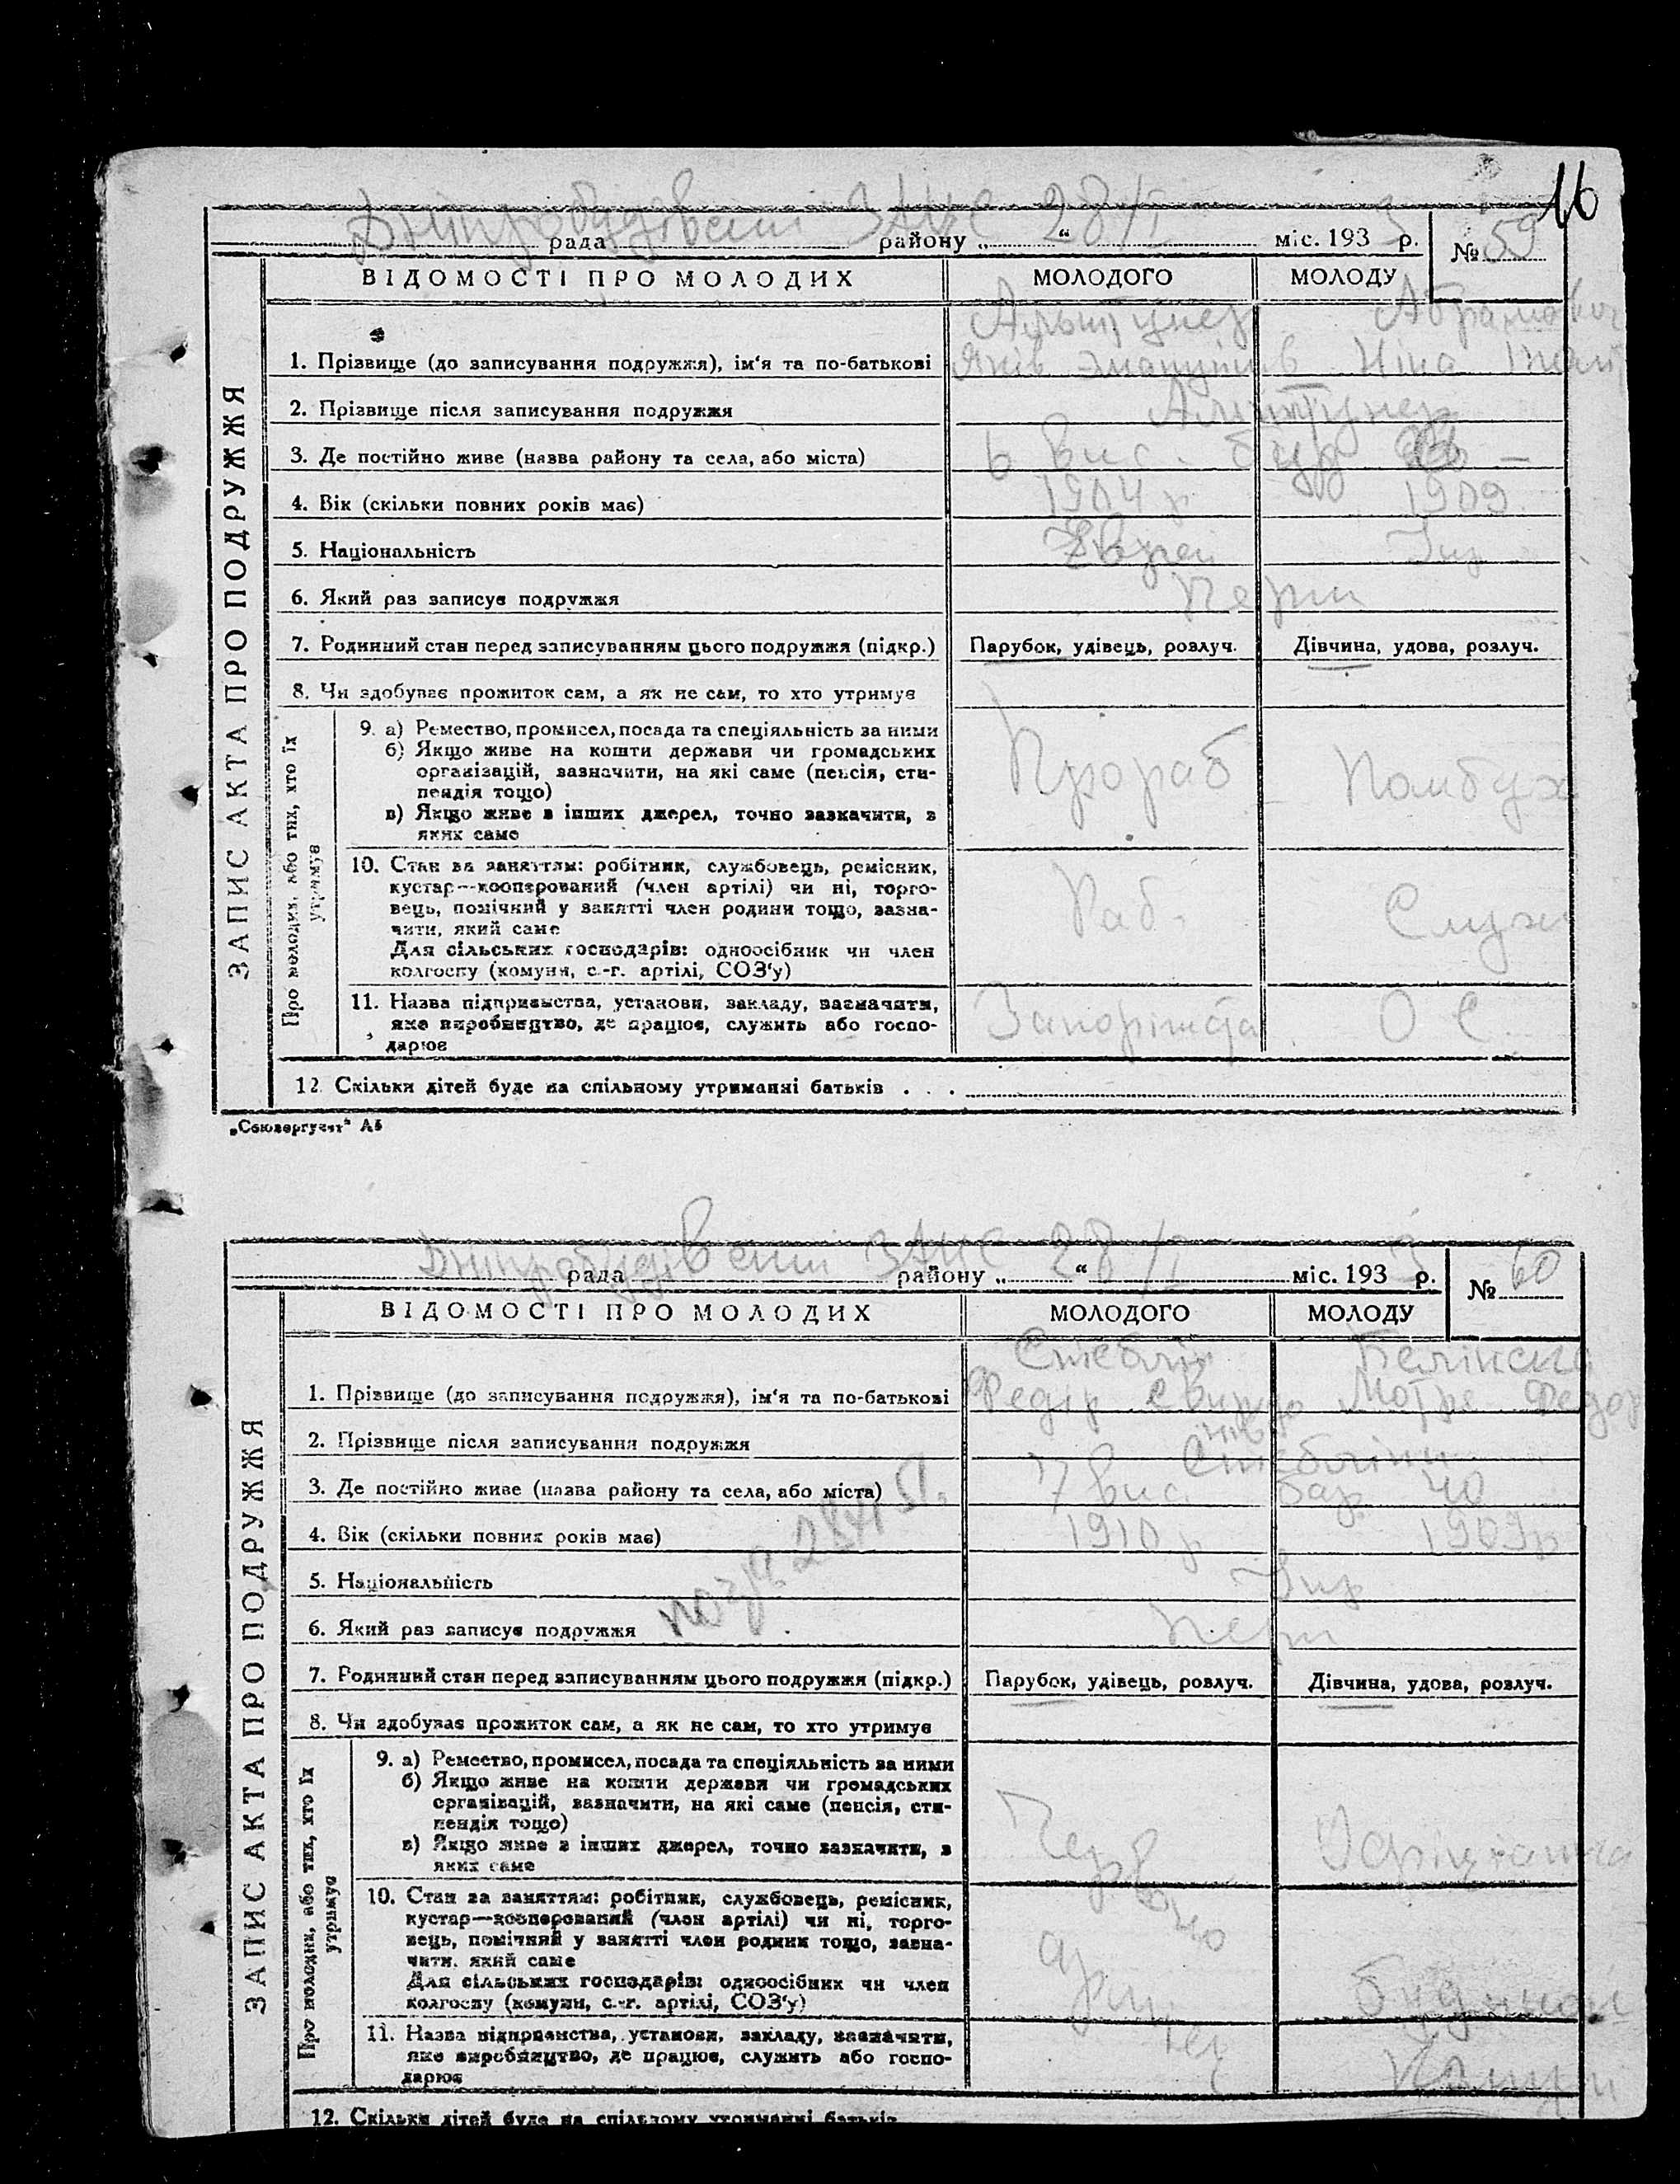 16
Дніпробудівськ ЗАГС 28/I 3
рада району „ “ міс. 193 р. № 59
ВІДОМОСТІ ПРО МОЛОДИХ МОЛОДОГО МОЛОДУ
1. Прізвище (до записування подружжя), ім‘я та по-батькові Яків Ніна
2. Прізвище після записування подружжя
3. Де постійно живе (назва району та села, або міста) 6 вис.
4. Вік (скільки повних років має) 1904 р 1909
5. Національність Єврей Укр
6. Який раз записує подружжя перш
7. Родинний стан перед записуванням цього подружжя (підкр.) Парубок, удівець, розлуч. Дівчина, удова, розлуч.
8. Чи здобуває прожиток сам, а як не сам, то хто утримує
ЗАПИС АКТА ПРО ПОДРУЖЖЯ
Про молодих, або тих, хто їх
утримує
9. а) Ремество, промисел, посада та спеціяльність за ними
б) Якщо живе на кошти держави чи громадських
організацій, зазначити, на які саме (пенсія, сти-
пендія тощо)
Прораб Помбух
в) Якщо живе з інших джерел, точно зазначити, з
яких саме
10. Стан за заняттям: робітник, службовець, ремісник,
кустар—кооперований (член артілі) чи ні, торго-
вець, помічний у занятті член родини тощо, зазна-
чити, який саме
Раб. Служ
Для сільських господарів: одноосібник чи член
колгоспу (комуни, с.-г. артілі, СОЗ‘у)
11. Назва підприємства, установи, закладу, зазначити,
яке виробництво, де працює, служить або госпо-
дарює
О С
12. Скільки дітей буде на спільному утриманні батьків . . .
Дніпробудівськ ЗАГС 28/I 3
рада району „ “ міс. 193 р. № 60
ВІДОМОСТІ ПРО МОЛОДИХ МОЛОДОГО МОЛОДУ
1. Прізвище (до записування подружжя), ім‘я та по-батькові Федір Мотря Федор
2. Прізвище після записування подружжя
3. Де постійно живе (назва району та села, або міста) 7 вис. бар 40
4. Вік (скільки повних років має) 1910 р 1909 р
5. Національність Укр
6. Який раз записує подружжя перш
7. Родинний стан перед записуванням цього подружжя (підкр.) Парубок, удівець, розлуч. Дівчина, удова, розлуч.
8. Чи здобуває прожиток сам, а як не сам, то хто утримує
ЗАПИС АКТА ПРО ПОДРУЖЖЯ
Про молодих, або тих, хто їх
утримує
9. а) Ремество, промисел, посада та спеціяльність за ними
б) Якщо живе на кошти держави чи громадських
організацій, зазначити, на які саме (пенсія, сти-
пендія тощо)
в) Якщо живе з інших джерел, точно зазначити, з
яких саме
10. Стан за заняттям: робітник, службовець, ремісник,
кустар—кооперований (член артілі) чи ні, торго-
вець, помічний у занятті член родини тощо, зазна-
чити, який саме
Для сільських господарів: одноосібник чи член
колгоспу (комуни, с.-г. артілі, СОЗ‘у)
11. Назва підприємства, установи, закладу, зазначити,
яке виробництво, де працює, служить або госпо-
дарює
12. Скільки дітей буде на спільному утриманні батьків